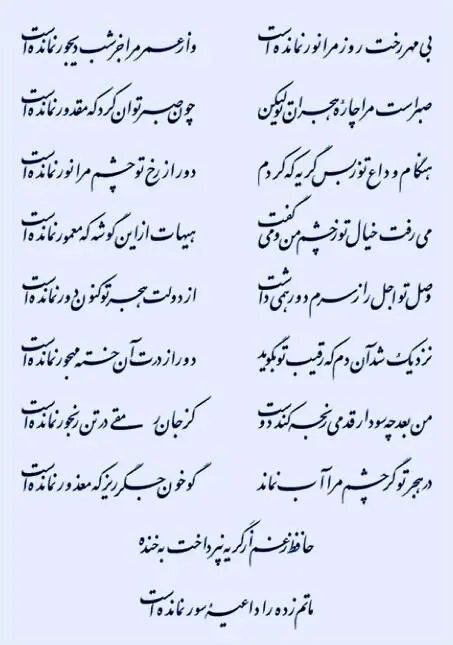 بی مهر رخت روز مرا نور نمانده است وز عمر مرا جز شب دیجور نمانده است
صبر است مرا چارهٔ هجران تو لیکن چون صبر توان کرد که مقدور نمانده است
هنگام وداع تو ز بس گریه که کردم دور از رخ تو چشم مرا نور نمانده است
می رفت خیال تو ز چشم من و می گفت هیهات از این گوشه که معمور نمانده است
وصل تو اجل را ز سرم دور همی داشت از دولت هجر تو کنون دور نمانده است
نزدیک شد آن دم که رقیب تو بگوید دور از درت آن خسته مهجور نمانده است
من بعد چه سود ار قدمی رنجه کند دوست کز جان رمقی در تن رنجور نمانده است
در هجر تو گر چشم مرا آب نماند گو خون جگر ریز که معذور نمانده است
حافظ ز غم از گریه نپرداخت به خنده
ماتم زده را داعیهٔ سور نمانده است